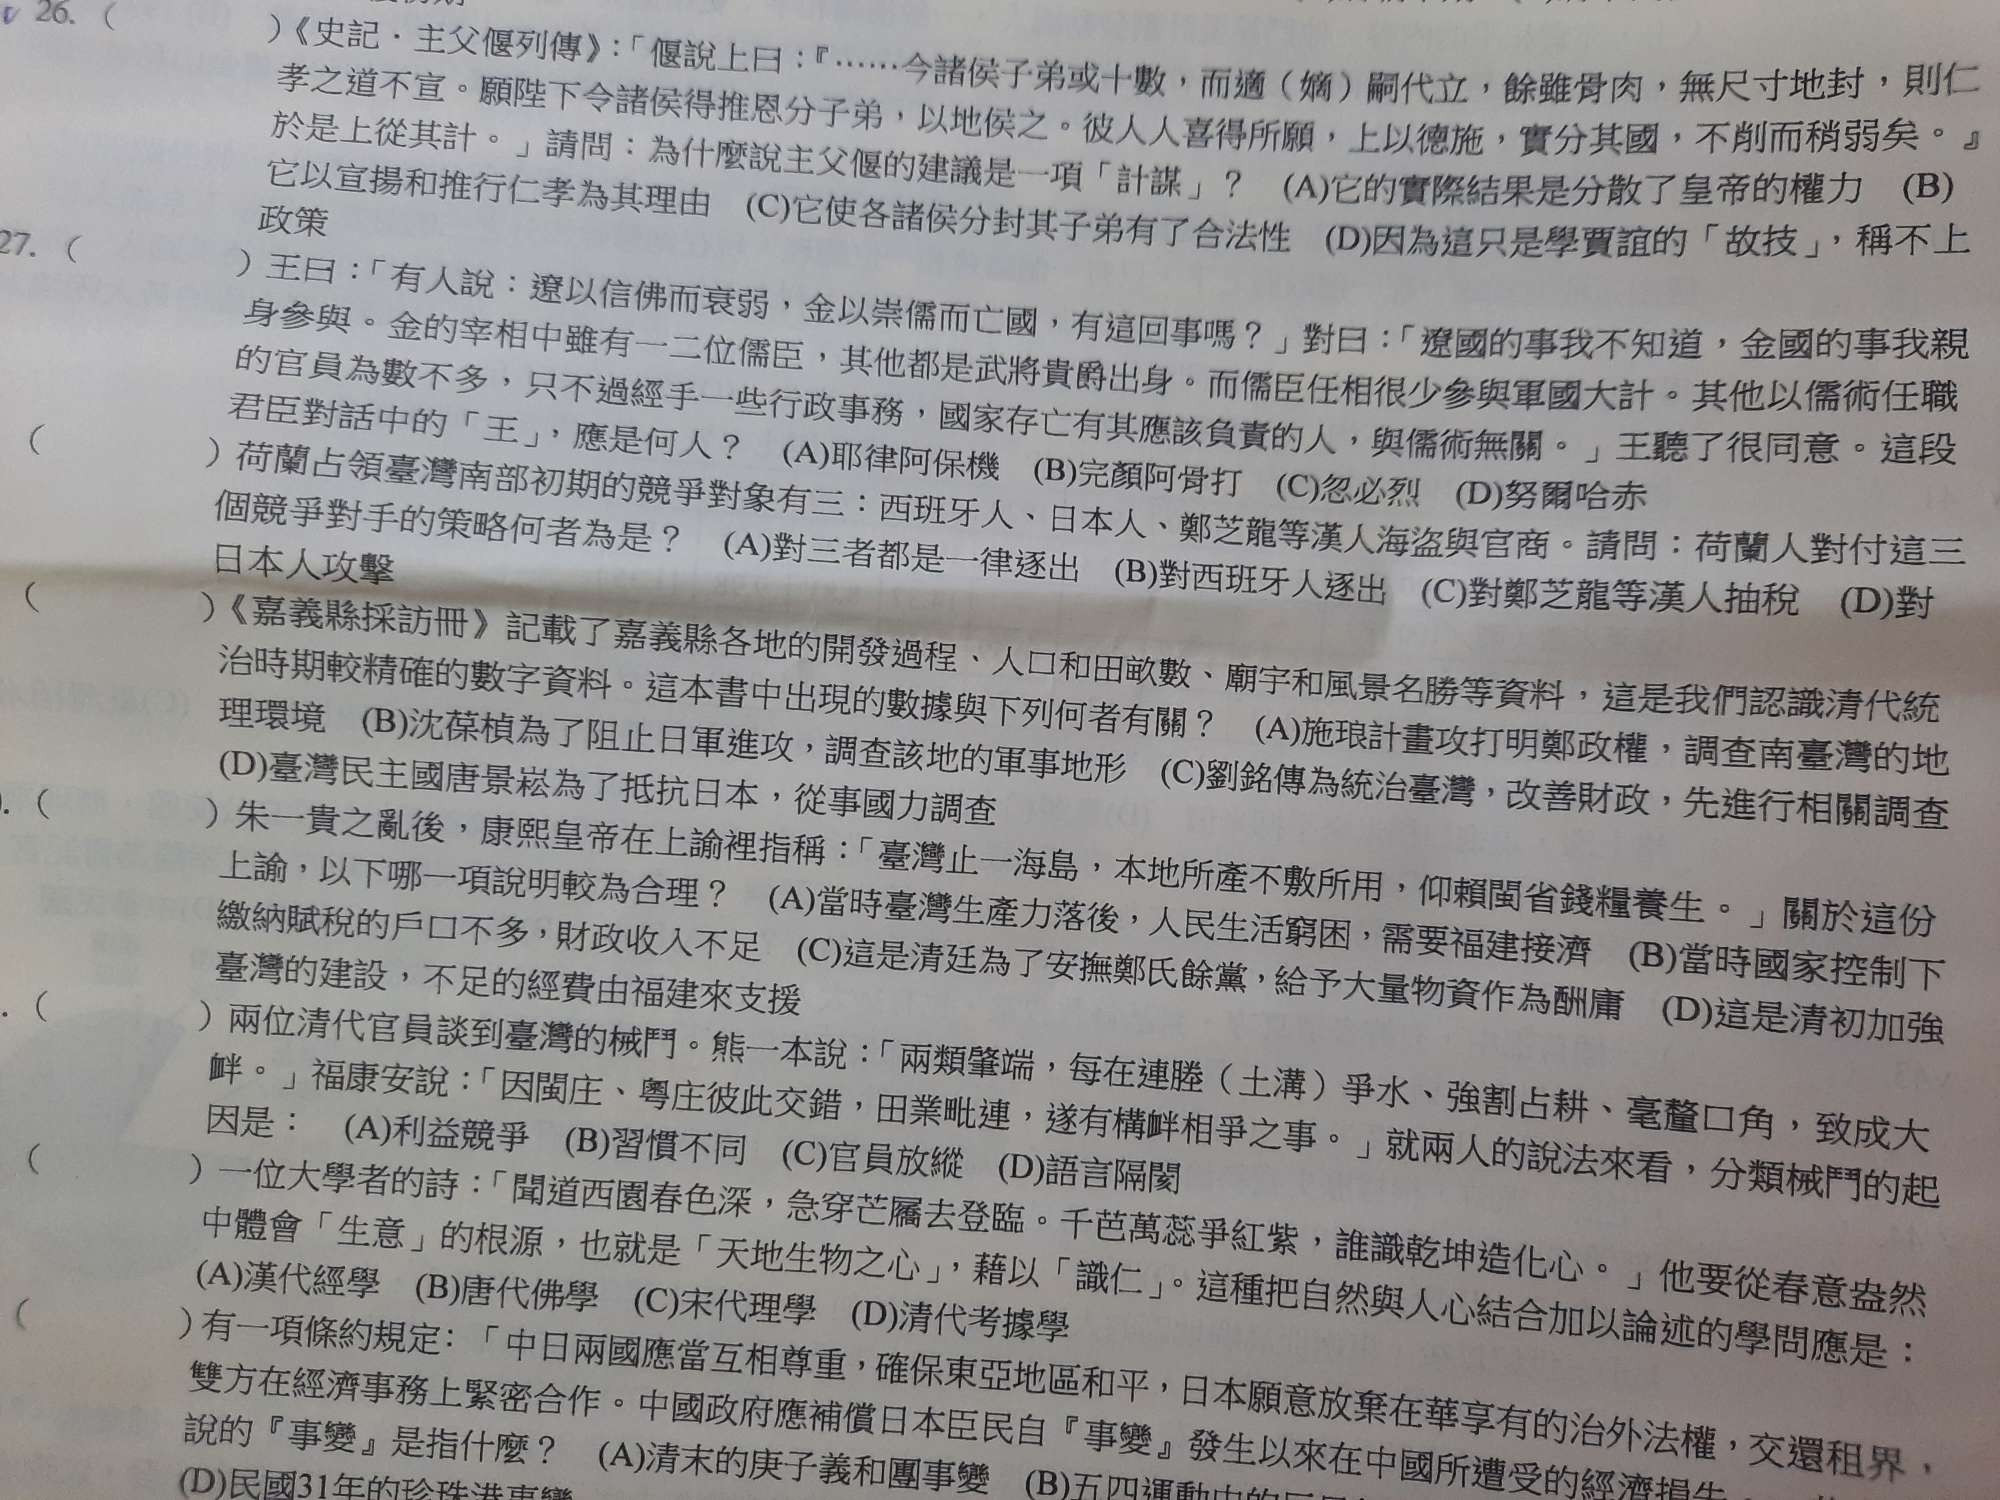 26. (　　)《史記．主父偃列傳》：「偃說上曰：『……今諸侯子弟或十數，而適（嫡）嗣代立，餘雖骨肉，無尺寸地封，則仁
孝之道不宣。願陛下令諸侯得推恩分子弟，以地侯之。彼人人喜得所願，上以德施，實分其國，不削而稍弱矣。』
於是上從其計。」請問：為什麼說主父偃的建議是一項「計謀」？　(A)它的實際結果是分散了皇帝的權力　(B)
它以宣揚和推行仁孝為其理由　(C)它使各諸侯分封其子弟有了合法性　(D)因為這只是學賈誼的「故技」，稱不上
政策
27. (　　) 王曰：「有人說：遼以信佛而衰弱，金以崇儒而亡國，有這回事嗎？」對曰：「遼國的事我不知道，金國的事我親
身參與。金的宰相中雖有一二位儒臣，其他都是武將貴爵出身。而儒臣任相很少參與軍國大計。其他以儒術任職
的官員為數不多，只不過經手一些行政事務，國家存亡有其應該負責的人，與儒術無關。」王聽了很同意。這段
君臣對話中的「王」，應是何人？　(A)耶律阿保機　(B)完顏阿骨打　(C)忽必烈　(D)努爾哈赤
(　　) 荷蘭占領臺灣南部初期的競爭對象有三：西班牙人、日本人、鄭芝龍等漢人海盜與官商。請問：荷蘭人對付這三
個競爭對手的策略何者為是？　(A)對三者都是一律逐出　(B)對西班牙人逐出　(C)對鄭芝龍等漢人抽稅　(D)對
日本人攻擊
(　　)《嘉義縣採訪冊》記載了嘉義縣各地的開發過程、人口和田畝數、廟宇和風景名勝等資料，這是我們認識清代統
治時期較精確的數字資料。這本書中出現的數據與下列何者有關？　(A)施琅計畫攻打明鄭政權，調查南臺灣的地
理環境　(B)沈葆楨為了阻止日軍進攻，調查該地的軍事地形　(C)劉銘傳為統治臺灣，改善財政，先進行相關調查
(D)臺灣民主國唐景崧為了抵抗日本，從事國力調查
. (　　) 朱一貴之亂後，康熙皇帝在上諭裡指稱：「臺灣止一海島，本地所產不敷所用，仰賴閩省錢糧養生。」關於這份
上諭，以下哪一項說明較為合理？　(A)當時臺灣生產力落後，人民生活窮困，需要福建接濟　(B)當時國家控制下
繳納賦稅的戶口不多，財政收入不足　(C)這是清廷為了安撫鄭氏餘黨，給予大量物資作為酬庸　(D)這是清初加強
臺灣的建設，不足的經費由福建來支援
. (　　) 兩位清代官員談到臺灣的械鬥。熊一本說：「兩類肇端，每在連塍（土溝）爭水、強割占耕、毫釐口角，致成大
衅。」福康安說：「因閩庄、粵庄彼此交錯，田業毗連，遂有構衅相爭之事。」就兩人的說法來看，分類械鬥的起
因是：　(A)利益競爭　(B)習慣不同　(C)官員放縱　(D)語言隔閡
(　　) 一位大學者的詩：「聞道西園春色深，急穿芒屩去登臨。千芭萬蕊爭紅紫，誰識乾坤造化心。」他要從春意盎然
中體會「生意」的根源，也就是「天地生物之心」，藉以「識仁」。這種把自然與人心結合加以論述的學問應是：
(A)漢代經學　(B)唐代佛學　(C)宋代理學　(D)清代考據學
(　　)有一項條約規定：「中日兩國應當互相尊重，確保東亞地區和平，日本願意放棄在華享有的治外法權，交還租界，
雙方在經濟事務上緊密合作。中國政府應補償日本臣民自『事變』發生以來在中國所遭受的經濟損失
說的『事變』是指什麼？　(A)清末的庚子義和團事變　(B)五四運動中的
(D)民國31年的珍珠港事變